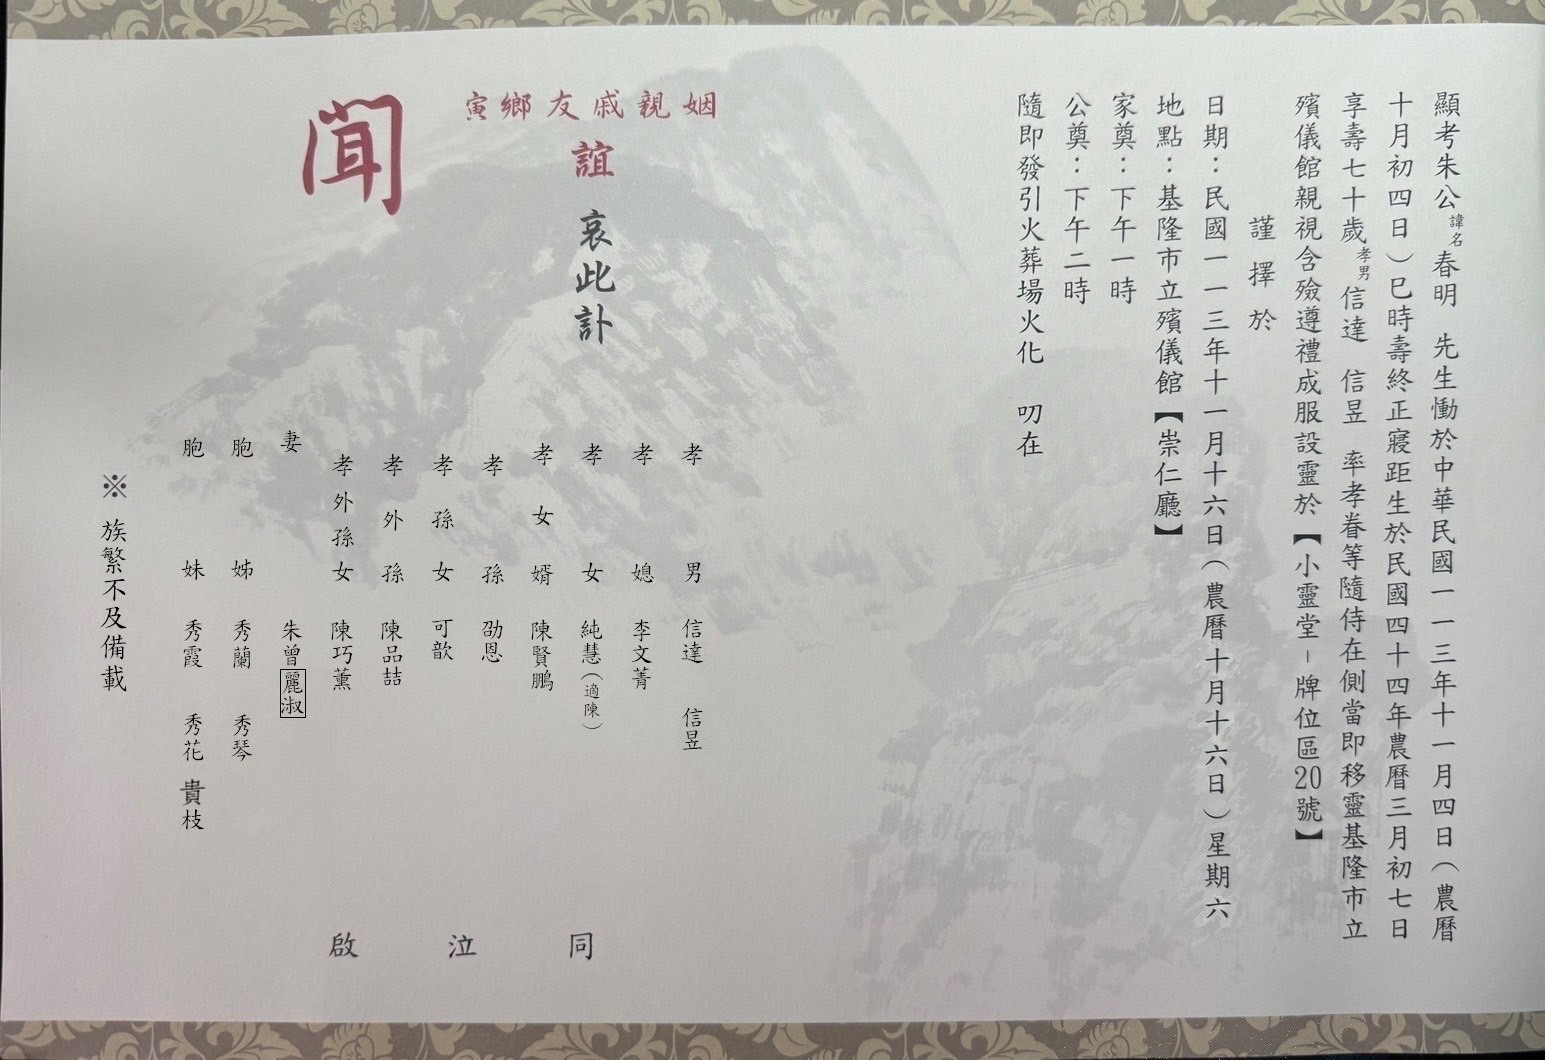 顯考朱公諱名春明　先生慟於中華民國一一三年十一月四日（農曆
十月初四日）巳時壽終正寢距生於民國四十四年農曆三月初七日
享壽七十歲孝男信達　信昱　率孝眷等隨侍在側當即移靈基隆市立
殯儀館親視含殮遵禮成服設靈於【小靈堂－牌位區20號】
謹擇於
日期：民國一一三年十一月十六日（農曆十月十六日）星期六
地點：基隆市立殯儀館【崇仁廳】
家奠：下午一時
公奠：下午二時
隨即發引火葬場火化　叨在
姻親戚友鄉寅
誼　哀此訃
聞
孝男　信達　信昱
孝媳　李文菁
孝女　純慧（適陳）
孝女婿　陳賢鵬
孝孫　劭恩
孝孫女　可歆
孝外孫　陳品喆
孝外孫女　陳巧薰
妻　朱曾麗淑
胞姊　秀蘭　秀琴
胞妹　秀霞　秀花　貴枝
同泣啟
※　族繁不及備載